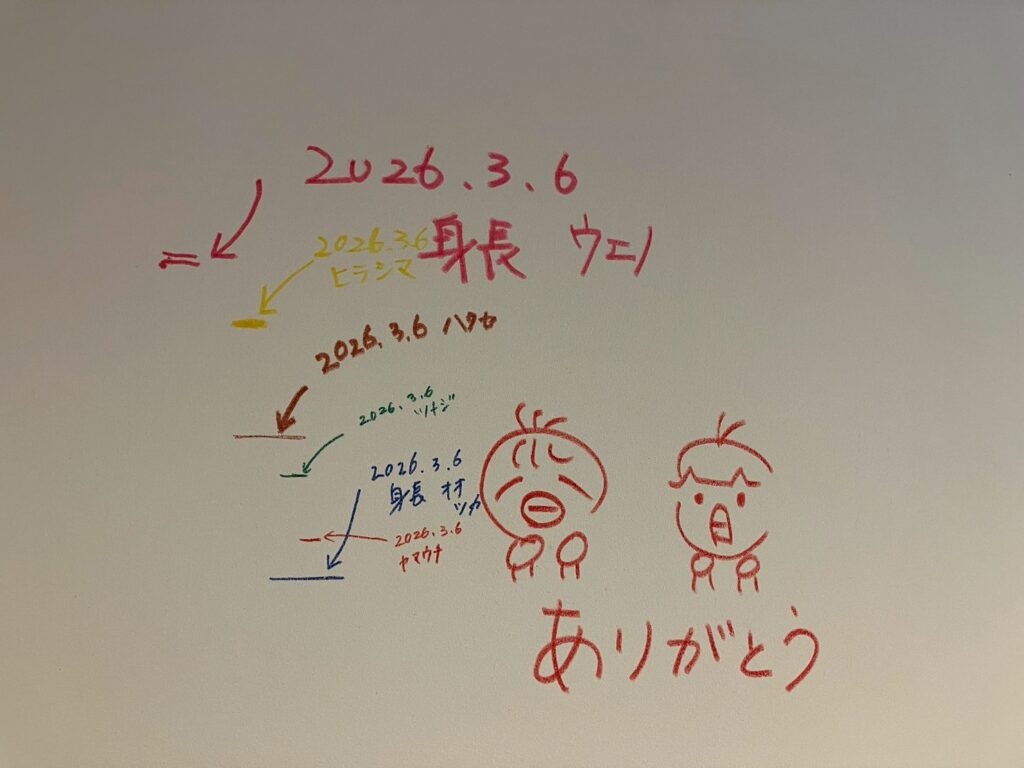 2026.3.6
身長 ウエノ
2026.3.6
ヒラシマ
2026.3.6 ハタセ
2026.3.6
ツナジ
2026.3.6
身長 オオ
ツカ
2026.3.6
ヤマウチ
ありがとう